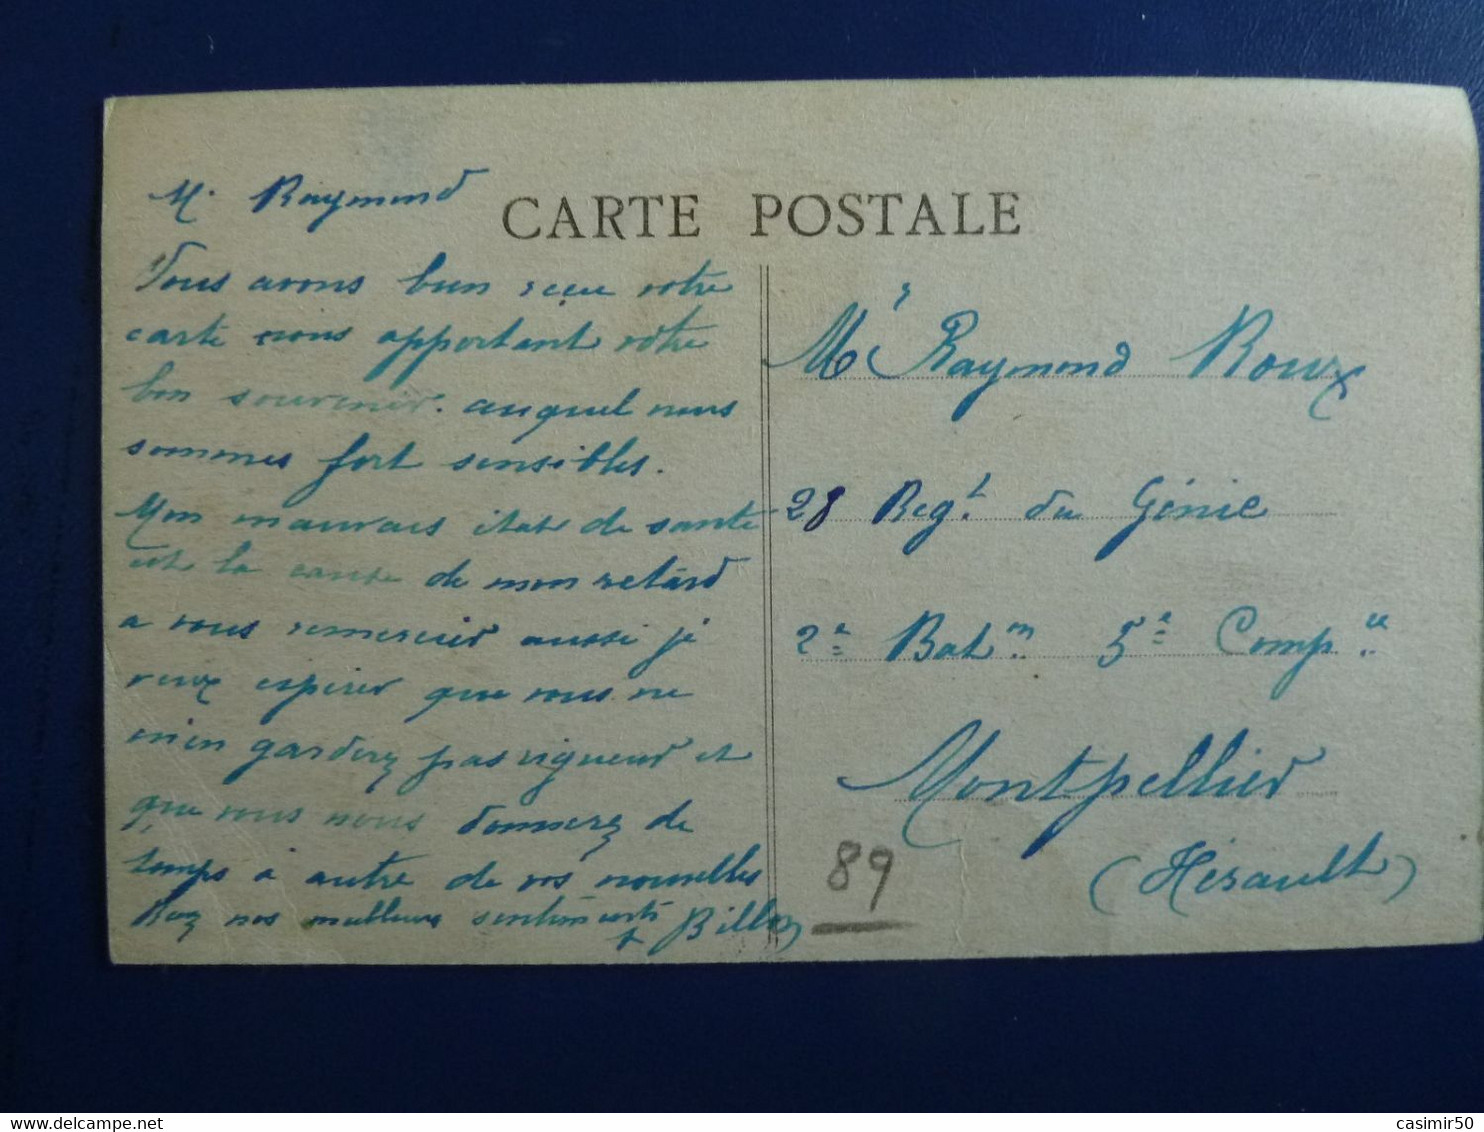 M. Raymond
CARTE POSTALE
Nous avons bien reçu votre
carte nous apportant votre
bon souvenir. auquel nous
sommes fort sensibles.
Mon mauvais état de santé
est la cause de mon retard
a vous remercier aussi je
veux espérer que vous ne
m'en garderez pas rigueur et
que vous nous donnerez de
temps à autre de vos nouvelles
nos meilleurs sentiments
Mr Raymond Roux
28 Regt. du Génie
2e Batm. 5e Comp.ie
Montpellier
(Hérault)
89
casimir50